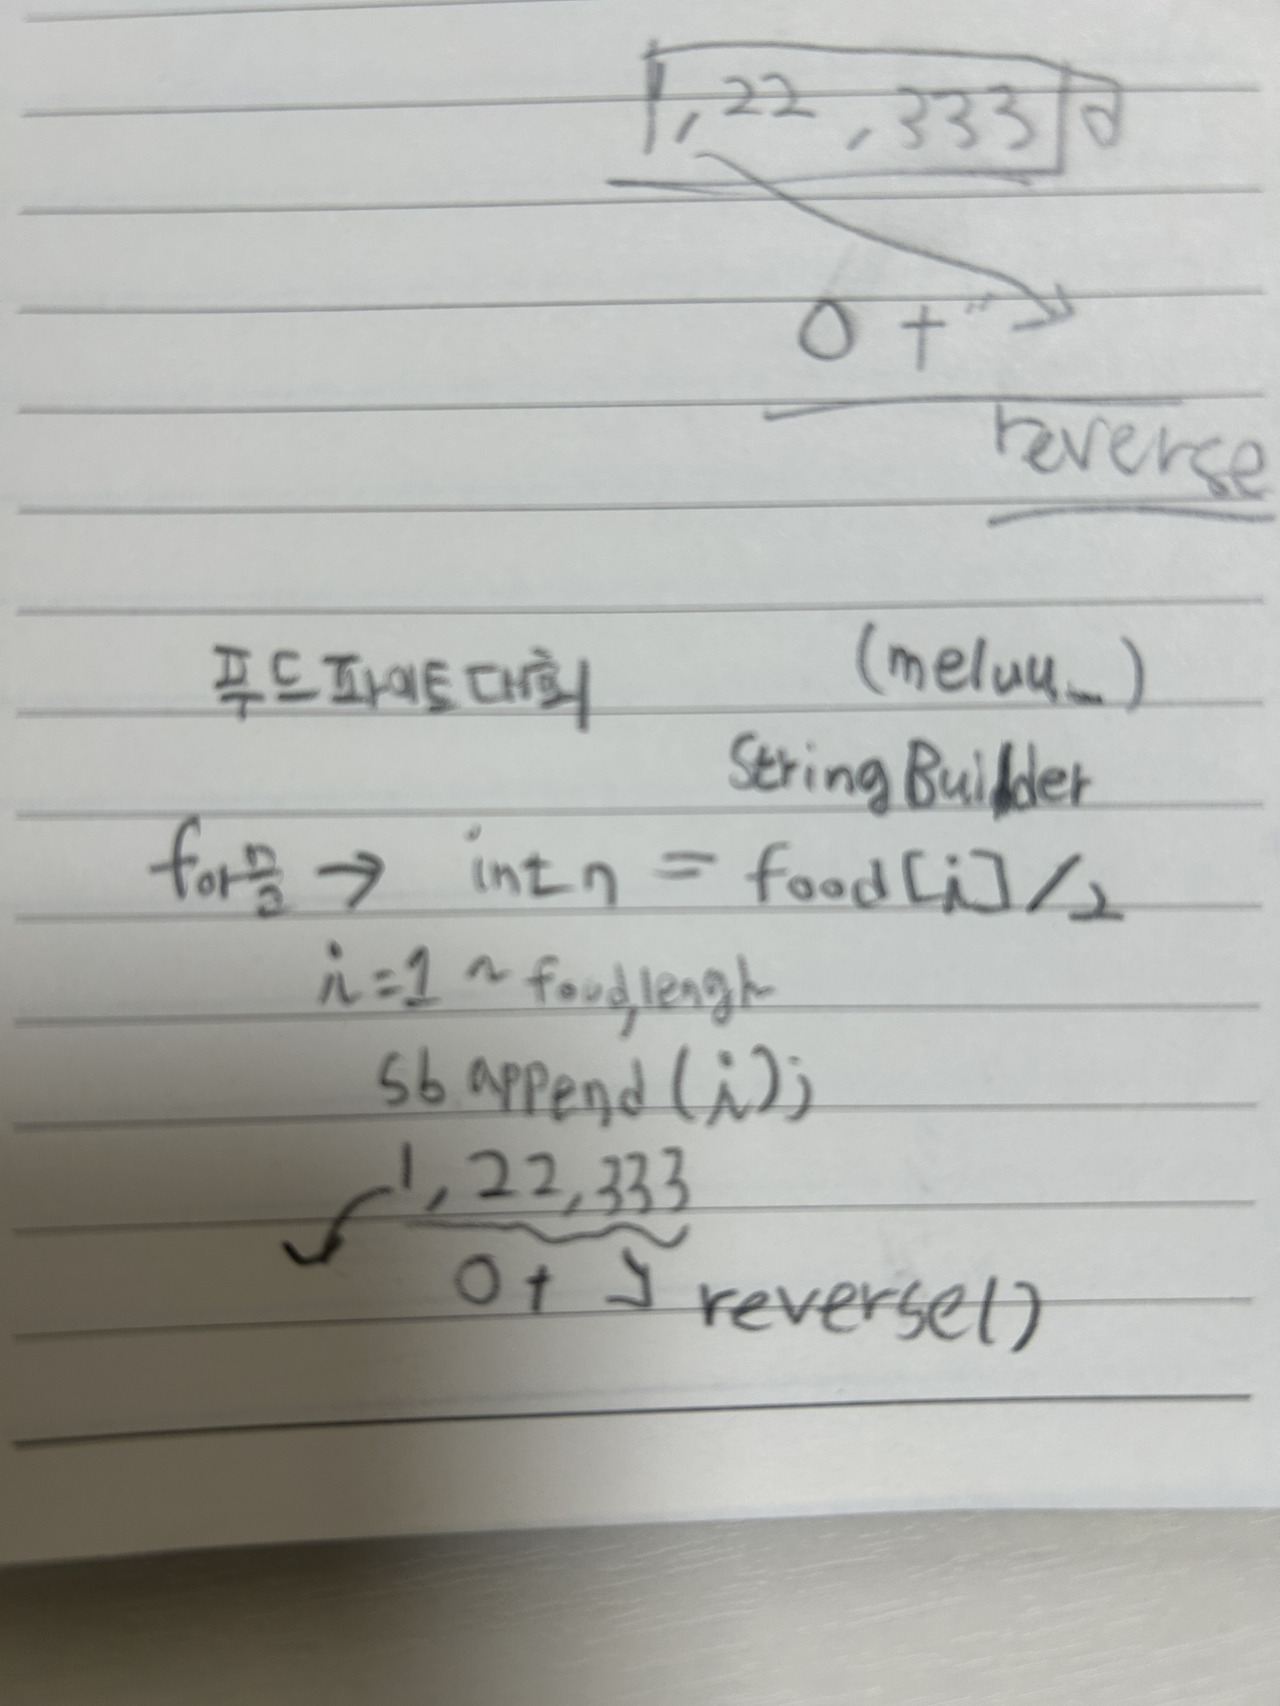 1, 22, 333
0 + "
reverse
푸드 파이트 대회 (meluu_)
StringBuilder
for문 → int n = food[i]/2
i=1 ~ food.lengh
sb append(i);
1, 22, 333
0+ reverse()